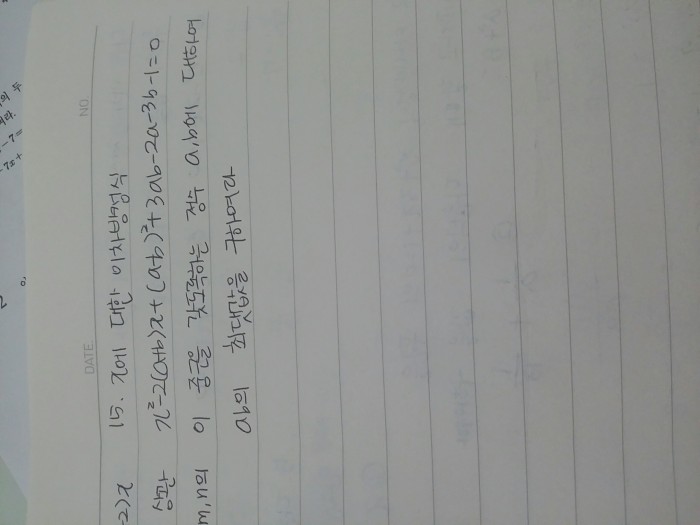 DATE NO
-2)x 15. x에 대한 이차방정식
x²-2(a+b)x+(a-b)²+3ab-2a-3b-1=0
m,n의 이 중근을 갖도록하는 정수 a,b에 대하여
ab의 최댓값을 구하여라